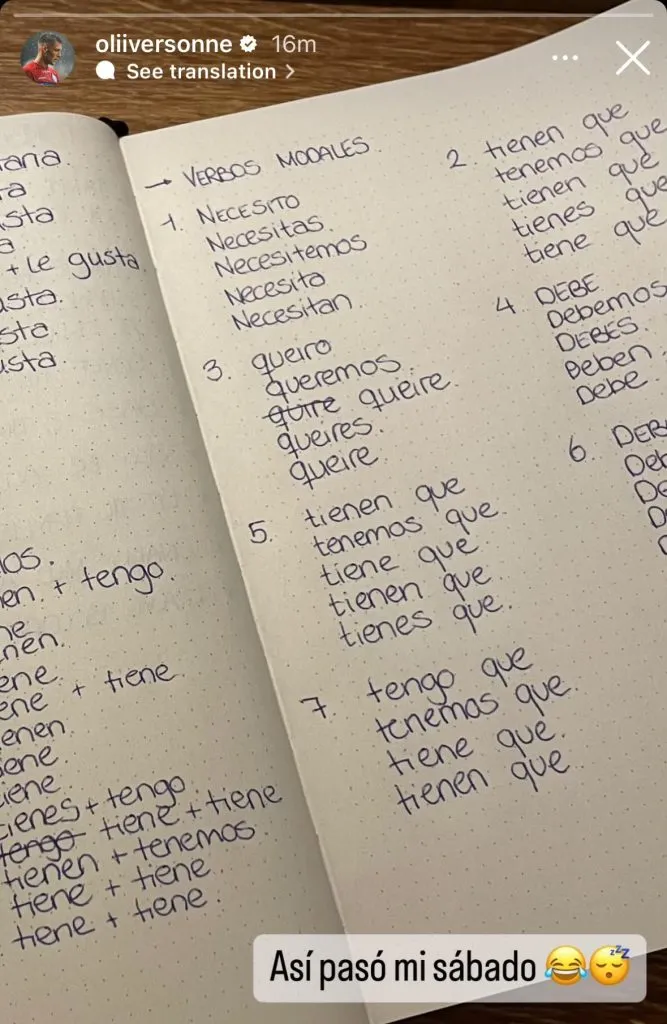 oliiversonne 16m
See translation >
usta
+ Le gusta
usta.
sta
usta.
+ tengo.
ene + tiene
tienes + tengo
tengo tiene + tiene
tienen + tenemos.
tiene + tiene
tiene + tiene.
→ VERBOS MODALES.
1. NECESITO
Necesitas.
Necesitemos
Necesita
Necesitan.
2 tienen que
tenemos que
tienen que
tienes que
tiene que
3. queiro
queremos.
quire queire.
queires.
queire
4 DEBE
Debemos
DEBES.
Deben.
Debe.
5. tienen que
tenemos que.
tiene que
tienen que
tienes que.
6.
7. tengo que
tenemos que.
tiene que.
tienen que.
Así pasó mi sábado 😂😴